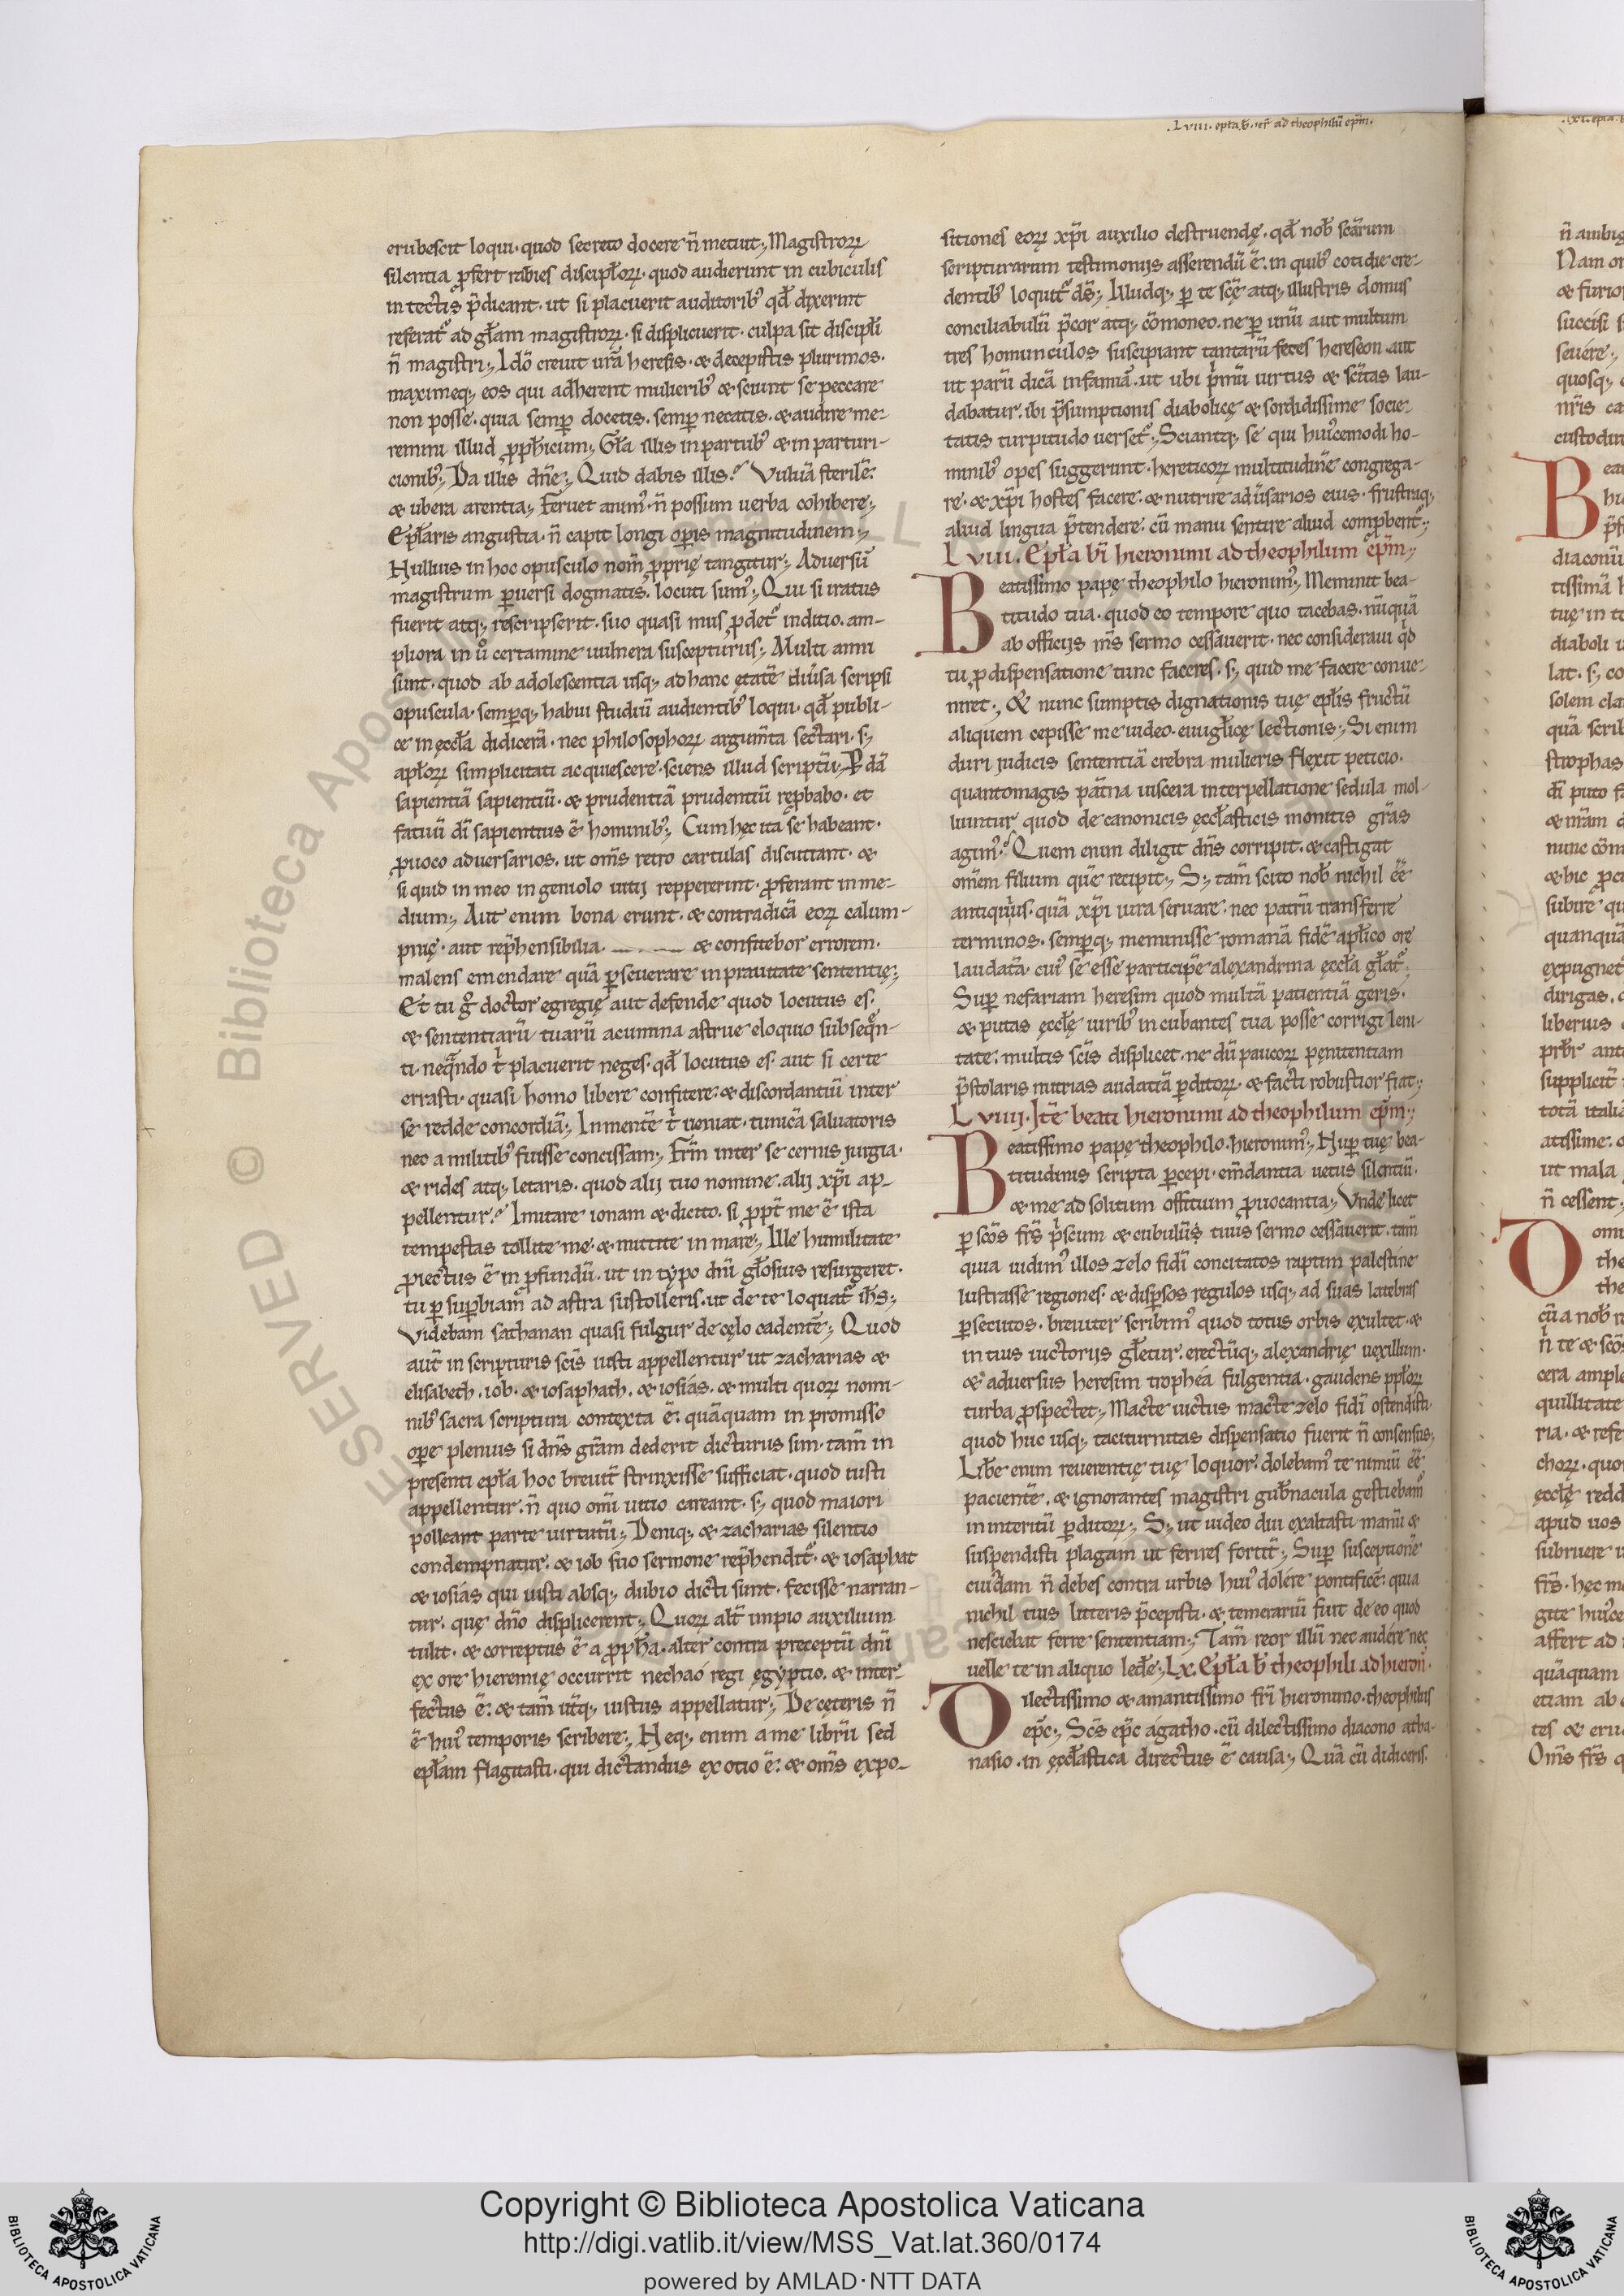 .Lviii. epła b̃. ier̃ ad theophilũ ep̃m.
erubescit loqui. quod secreto docere n̄ metuit; Magistroꝝ
silentia ꝓfert rabies discipłoꝝ. quod audierunt in cubiculis
in tectis p̄dicant. ut si placuerit auditorib; qđ dixerint
referat᷑ ad gła̅m magistroꝝ. si displicuerit. culpa sit discipłi
n̄ magistri; Idō creuit ur̃a heresis. & decepistis plurimos.
maximeq; eos qui adherent mulierib; & sciunt se peccare
non posse. quia semꝑ docetis. semꝑ necatis. & audire me-
remini illud ꝓph̃icum; Gła illis in partub; & in parturi-
cionib;; Da illis dñe; Quid dabis illis? Vuluã sterilē.
& ubera arentia; Feruet anim;. n̄ possum uerba cohibere;
Epłaris angustia. n̄ capit longi oꝑis magnitudinem;
Nullius in hoc opusculo nom̄ ꝓprię tangitur; Aduersū
magistrum ꝑuersi dogmatis. locuti sum;; Qui si iratus
fuerit atq; rescripserit. suo quasi mus ꝓdet᷑ inditio. am-
pliora in uͦ certamine uulnera suscepturus; Multi anni
sunt. quod ab adolescentia usq; ad hanc ętatē diũsa scripsi
opuscula. semꝑq; habui studiū audientib; loqui. qđ publi-
ce in ęccła didicerã. nec philosophoꝝ argum̃ta sectari. s;
apłoꝝ simplicitati acquiescere. sciens illud scriptū; P̱dã
sapientiã sapientiū. & prudentiã prudentiū rep̱babo. et
fatuū dī sapientius ē hominib;; Cum hęc ita se habeant.
ꝓuoco aduersarios. ut om̃s retro cartulas discutiant. &
si quid in meo ingeniolo uitij reppererint. ꝓferant in me-
dium; Aut enim bona erunt. & contradicã eoꝝ calum-
pnię. aut rep̃hensibilia. & confitebor errorem.
malens emendare quã ꝑseuerare in prauitate sententię;
Et tu gͦ doctor egregię aut defende quod locutus es.
& sententiarū tuarū acumina astrue eloquio subseq̃n-
ti. neq̃ndo t̓ placuerit neges. qđ locutus es. aut si certe
errasti. quasi homo libere confitere. & discordantiū inter
se redde concordiã; In mentē t̓ ueniat. tunicã saluatoris
nec a militib; fuisse concissam; Fr̃m inter se cernis jurgia.
& rides atq; letaris. quod alij tuo nomine. alij xp̄i ap-
pellentur? Imitare ionam & dicito. si ꝓpt̃ me ē ista
tempestas tollite me. & mittite in mare; Ille humilitate
ꝓiectus ē in p̱fundū. ut in typo dnī głosius resurgeret.
tu ꝑ suꝑbiam̃ ad astra sustolleris. ut de te loquat᷑ ih̃s;
Videbam sathanan quasi fulgur de cęlo cadentē; Quod
aut̃ in scripturis scīs iusti appellentur ut zacharias &
elisabeth. iob. & iosaphath. & iosias. & multi quoꝝ nomi-
nib; sacra scriptura contexta ē. quãquam in promisso
oꝑe plenius si dn̄s grãm dederit dicturus sim. tam̃ in
presenti epła hoc breuit̃ strinxisse sufficiat. quod iusti
appellentur. n̄ quo om̃i uitio careant. s; quod maiori
polleant parte uirtutū; Deniq; & zacharias silentio
condempnatur. & iob suo sermone rep̃hendit᷑. & iosaphat
& iosias qui iusti absq; dubio dicti sunt. fecisse narran-
tur. quę dn̄o displicerent; Quoꝝ alt̃ impio auxilium
tulit. & correptus ē a ꝓph̃a. alter contra preceptū dnī
ex ore hieremię occurrit nechao regi ęgyptio. & inter-
fectus ē. & tam̃ ut̃q; iustus appellatur; De cęteris n̄
ē hui; temporis scribere; Neq; enim a me librū sed
epłam flagitasti. qui dictandus ex otio ē. & om̃s expo-
sitiones eoꝝ xp̄i auxilio destruendę. qđ nob̃ scãrum
scripturarum testimonijs asserendū ē. in quib; cotidie cre-
dentib; loquit᷑ ds̃; Illudq; ꝑ te scę̃ atq; illustris domus
conciliabulū p̃cor atq; cōmoneo. ne ꝑ unū aut multum
tres homunculos suscipiant tantarū feces hereseon aut
ut parū dicã infamiã. ut ubi p̓mū uirtus & sc̃itas lau-
dabatur. ibi p̃sumptionis diabolicę & sordidissime socie-
tatis turpitudo uerset᷑; Sciantq; se qui hui;cemodi ho-
minib; opes suggerunt. hereticoꝝ multitudinē congrega-
re. & xp̄i hostes facere. & nutrire adũsarios eius. frustraq;
aliud lingua p̃tendere. cū manu sentire aliud comp̱bent᷑;
Lviii. Epła bī hieronimi ad theophilum ep̃m;
Beatissimo papę theophilo hieronim;; Meminit bea-
titudo tua. quod eo tempore quo tacebas. nūquã
ab officijs m̃s sermo cessauerit. nec consideraui qđ
tu ꝓ dispensatione tunc faceres. s; quid me facere conue-
niret; & nunc sumptis dignationis tuę epłis fructū
aliquem cepisse me uideo. euuãgłicę lectionis; Si enim
duri judicis sententiã crebra mulieris flexit peticio.
quantomagis pat̃na uiscera interpellatione sedula mol-
liuntur quod de canonicis ęccłasticis monitis grãs
agim;? Quem enim diligit dn̄s corripit. & castigat
om̃em filium quē recipit; S; tam̃ scito nob̃ nichil eē
antiqui̓us. quã xp̄i iura seruare. nec patrū transferre
terminos. semꝑq; meminisse romanã fidē apłico ore
laudatã. cui; se esse participē alexandrina ęccła głat᷑;
Suꝑ nefariam heresim quod multã patientiã geris.
& putas ęccłę uirib; incubantes tua posse corrigi leni-
tate. multis scīs displicet. ne dū paucoꝝ pęnitentiam
p̃stolaris nutrias audatiã ꝑditoꝝ. & facti robustior fiat;
Lviiij. Itē beati hieronimi ad theophilum ep̃m;
Beatissimo papę theophilo. hieronim;; Nuꝑ tuę bea-
titudinis scripta ꝑcepi. em̃dantia uetus silentiū.
& me ad solitum offitium ꝓuocantia; Vnde licet
ꝑ scōs fr̃s p̓scum & eubulūs tuus sermo cessauerit. tam̃
quia uidim; illos zelo fidī concitatos raptim palestine
lustrasse regiones. & disꝑsos regulos usq; ad suas latebras
ꝑsecutos. breuiter scribim; quod totus orbis exultet. &
in tuis uictorijs głetur. erectūq; alexandrię uexillum.
& aduersus heresim trophea fulgentia. gaudens ppłoꝝ
turba ꝓspectet; Macte uictus macte zelo fidī ostendisti
quod huc usq; taciturnitas dispensatio fuerit n̄ consensus;
Lib̃e enim reuerentię tuę loquor. dolebam; te nimiū eē
pacientē. & ignorantes magistri gub̃nacula gestiebam;
in interitū ꝑditoꝝ; S; ut uideo diu exaltasti manū &
suspendisti plagam ut ferires fortit̃; Suꝑ susceptionē
cui;dam n̄ debes contra urbis hui; dolere pontificē. quia
nichil tuis litteris p̃cepisti. & temerariū fuit de eo quod
nesciebat ferre sententiam; Tam̃ reor illū nec audere nec
uelle te in aliquo led̃e; Lx. Epła b̃ theophili ad hieroñ.
Dilectissimo & amantissimo fr̃i hieronimo. theophilus
ep̃c; Scs̃ ep̃c agatho. cū dilectissimo diacono atha-
nasio. in ęccłastica directus ē causa; Quã cū didiceris.
Copyright © Biblioteca Apostolica Vaticana
http://digi.vatlib.it/view/MSS_Vat.lat.360/0174
powered by AMLAD·NTT DATA
BIBLIOTECA APOSTOLICA VATICANA
BIBLIOTECA APOSTOLICA VATICANA